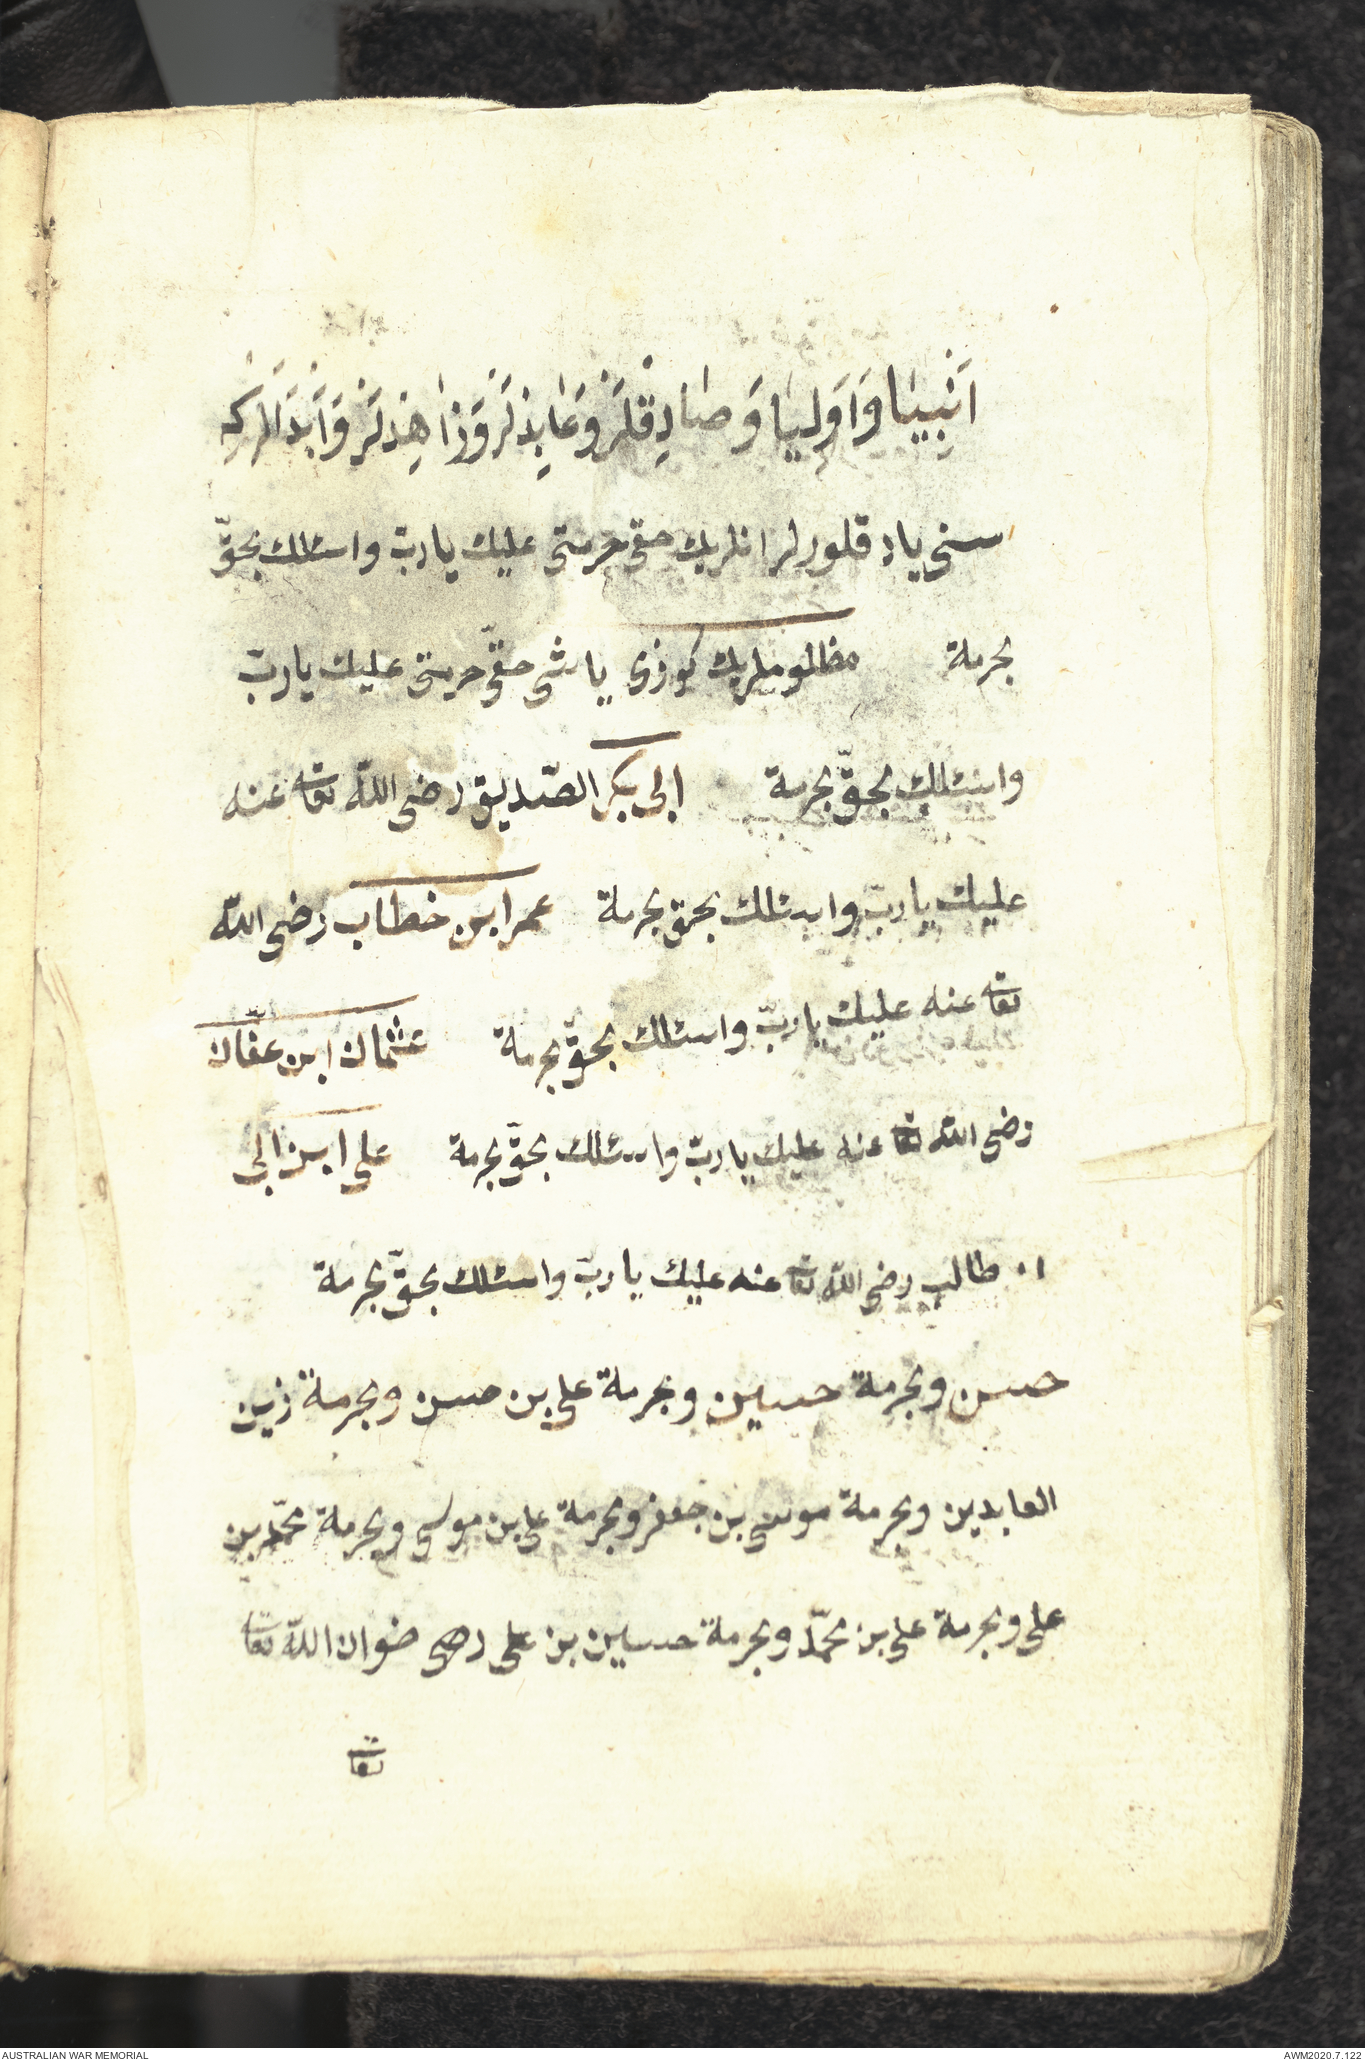 اَنْبِيَا وَاَوْلِيَا وَصَادِقْلَرْ وَعَابِدْلَرْ وَزَاهِدْلَرْ وَاَبْدَالْلَرْكه
سنى ياد قلورلر انلرىك حقى حرمتى عليك يا ربّ واسئلك بحقّ
بحرمة مظلوملرىك كوزى ياشى حقّى حرمتى عليك يا ربّ
واسئلك بحقّ بحرمة ابى بكر الصّديق رضى اللّه تعا عنه
عليك يا ربّ واسئلك بحق بحرمة عمر ابن خطاب رضى اللّه
تعا عنه عليك يا ربّ واسئلك بحقّ بحرمة عثمان ابن عفّان
رضى اللّه تعا عنه عليك يا ربّ واسئلك بحقّ بحرمة على ابن ابى
طالب رضى اللّه تعا عنه عليك يا ربّ واسئلك بحقّ بحرمة
حسن وبحرمة حسين وبحرمة على بن حسن وبحرمة زين
العابدين وبحرمة موسى بن جعفر وبحرمة على بن موسى وبحرمة محمّد بن
على وبحرمة على بن محمّد وبحرمة حسين بن على رضى ضوان اللّه تعا
تعا
AUSTRALIAN WAR MEMORIAL
AWM2020.7.122